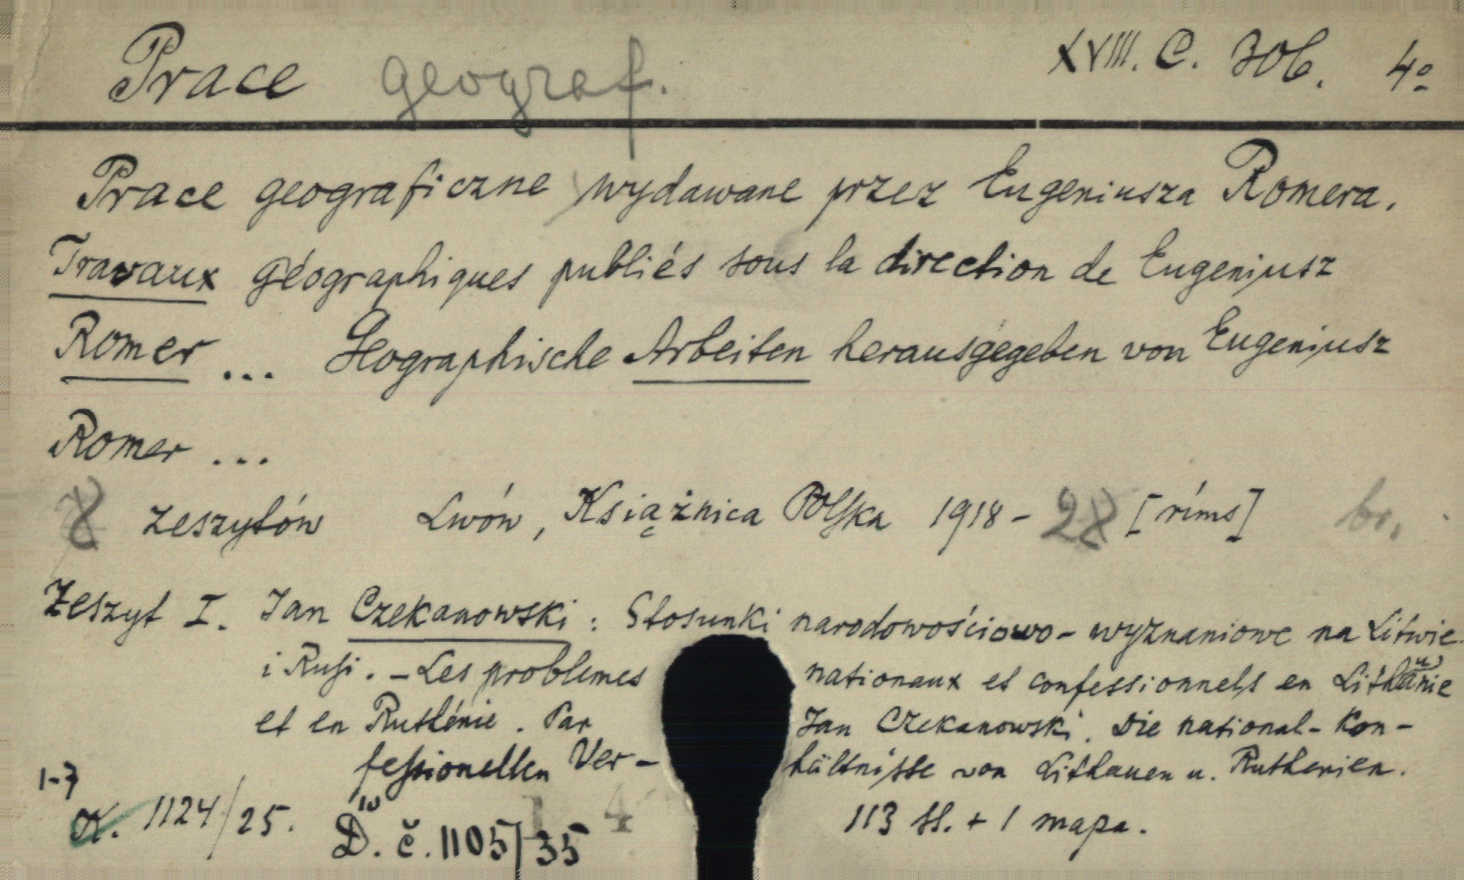 Prace geograf. XVIII. C. 306. 4º
Prace geograficzne wydawane przez Eugeniusza Romera.
Travaux géographiques publiés sous la direction de Eugenjusz
Romer ... Geographische Arbeiten herausgegeben von Eugenjusz
Romer ...
8 zeszytów Lwów, Książnica Polska 1918 - 28 [ríms] br.
Zeszyt I. Jan Czekanowski: Stosunki narodowościowo-wyznaniowe na Litwie
i Rusi. - Les problemes nationaux et confessionnels en Lithuanie
et en Ruthénie. Par Jan Czekanowski. Die national-Kon-
fessionellen Verhältnisse von Lithauen u. Ruthenien.
1-7
K. 1124/25. 113 ss. + 1 mapa.
10 D. č. 1105/35 4